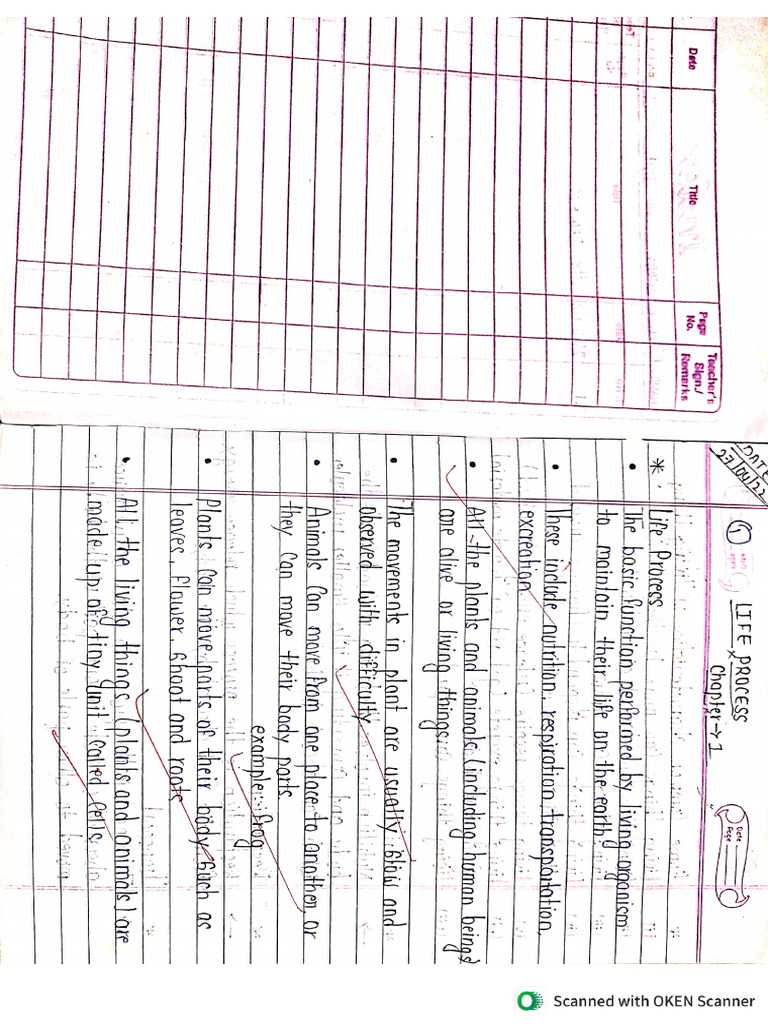 Date
Title
Page
No.
Teacher's
Sign./
Remarks
DATE
27/04/22
1
LIFE PROCESS
Chapter→1
Date
Page
* Life Process
• The basic function performed by living organism
to maintain their life on the earth
• These include nutrition, respiration, transportation,
excreation
• All the plants and animals (including human beings)
are alive or living things.
• The movements in plant are usually slow and
observed with difficulty
• Animals can move from one place to another or
they can move their body parts
example: frog
• Plants can move parts of their body such as
leaves, flower, shoot and roots
• All the living things (plants and animals) are
made up of tiny unit called cells
Scanned with OKEN Scanner